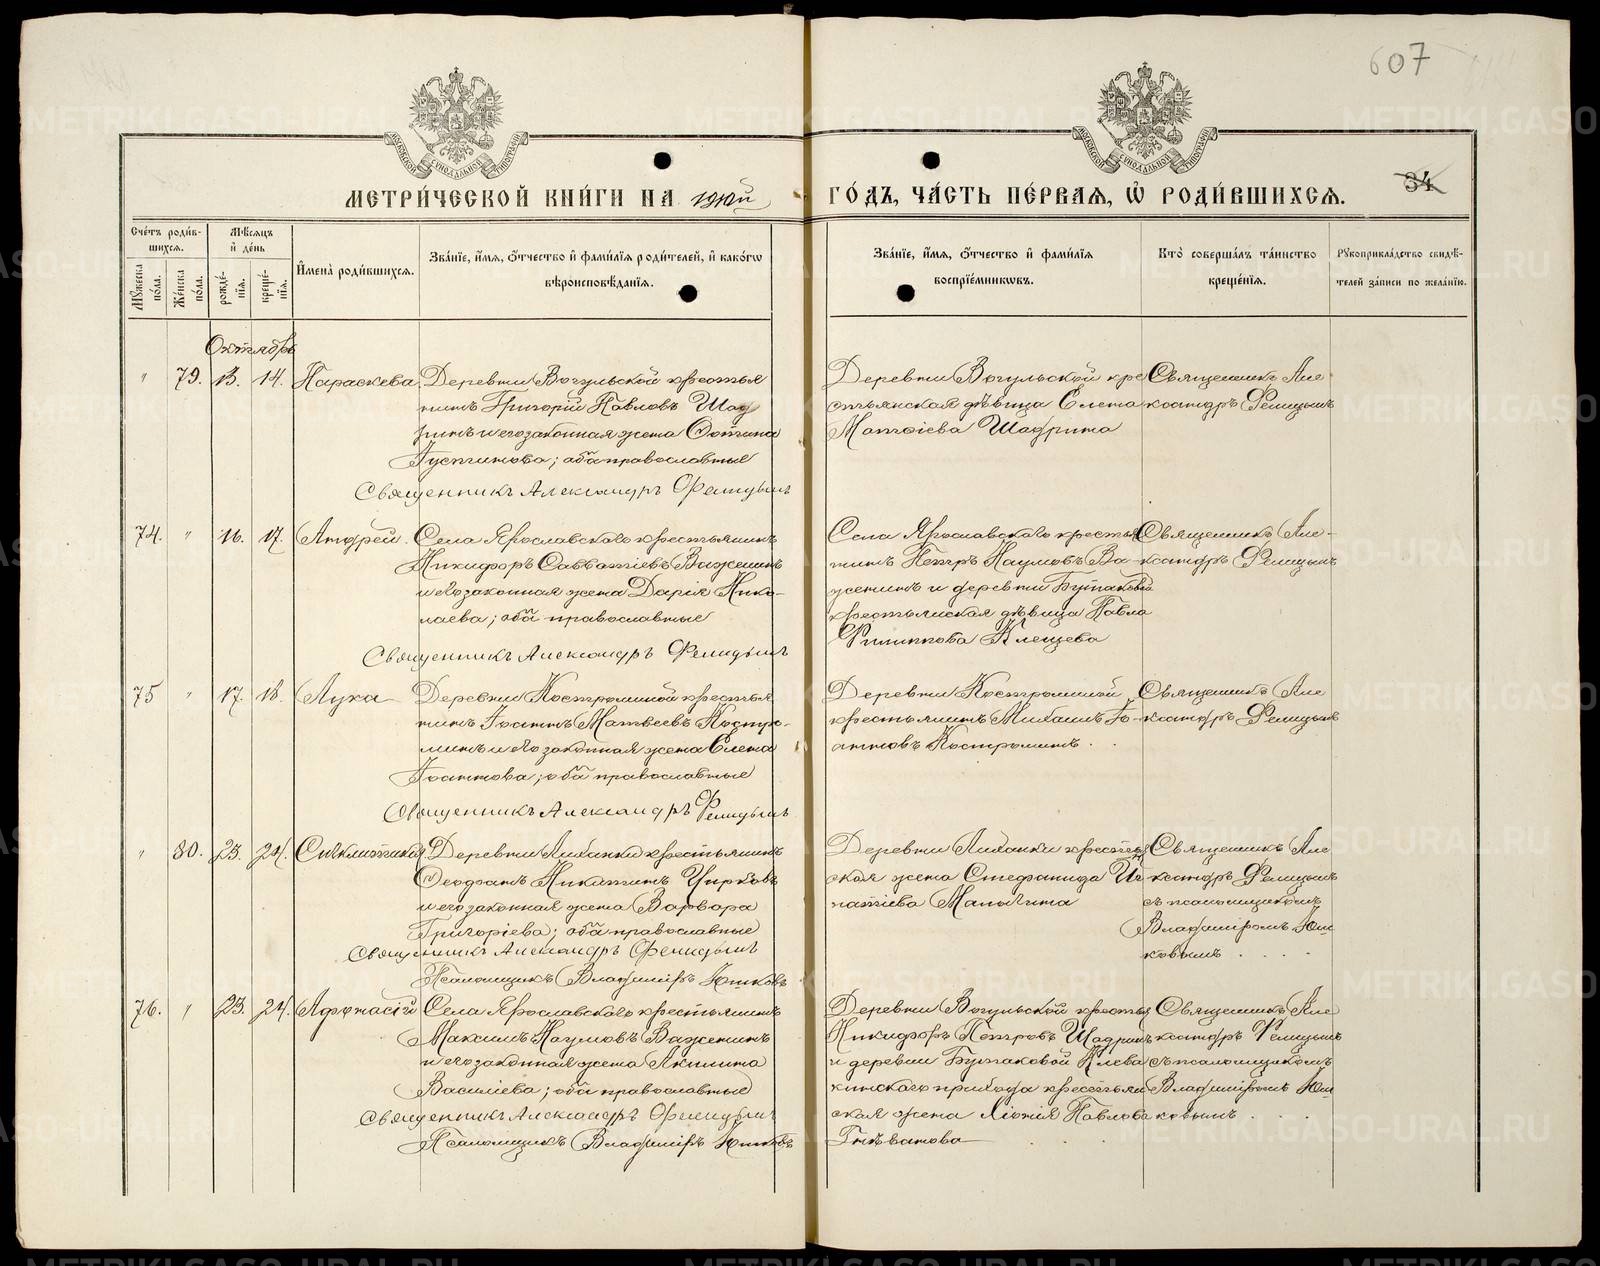 607
МЕТРИ́ЧЕСКОЙ КНИ́ГИ НА 1910й ГО́ДЪ, ЧА́СТЬ ПЕ́РВАЯ, Ѡ РОДИ́ВШИХСЯ.
34
Сче́тъ роди́в-
шихся.
Му́жеска по́ла.
Же́нска по́ла.
Мѣ́сяцъ и де́нь
рожде́-
нїя.
креще́-
нїя.
И҆мена̀ роди́вшихся.
Зва́нїе, и҆́мя, о҆́тчество и҆ фами́лїя роди́телей, и҆ како́гѡ
вѣроисповѣ́данїя.
Зва́нїе, и҆́мя, о҆́тчество и҆ фами́лїя
воспрїе́мникѡвъ.
Кто̀ соверша́лъ та́инство
креще́нїя.
Рꙋкоприкла́дство свидѣ́-
телей за́писи по жела́нїю.
Октябрь
" 79. 13. 14. Параскева
Деревни Вогульской крестья
нинъ Григорій Павловъ Шад
ринъ и его законная жена
Густинова; оба православные
Священникъ Александръ Фелицынъ
Деревни Вогульской кре
стьянская дѣвица Елена
Матѳіева Шадрина
Священникъ Але
ксандръ Фелицынъ
74. " 16. 17. Андрей
Села Ярославскаго крестьянинъ
Никифоръ Савватіевъ Важенинъ
и его законная жена Дарія Нико-
лаева; оба православные
Священникъ Александръ Фелицынъ
Села Ярославскаго крестья
нинъ Петръ Наумовъ Ва-
женинъ и деревни Бунаковой
крестьянская дѣвица Павла
Филиппова Клещева
Священникъ Але-
ксандръ Фелицынъ
75 " 17. 18. Лука
Деревни Костроминой крестья
нинъ Іоаннъ Матвеевъ Костро-
минъ и его законная жена Елена
Іоаннова; оба православные
Священникъ Александръ Фелицынъ
Деревни Костроминой
крестьянинъ Михаилъ Іо-
анновъ Костроминъ.
Священникъ Але
ксандръ Фелицынъ
" 80. 23. 24. Синклитикія
Деревни Лиханки крестьянинъ
Ѳеофанъ Никитинъ Чирковъ
и его законная жена Варвара
Григоріева; оба православные
Священникъ Александръ Фелицынъ
Псаломщикъ Владиміръ Юшковъ
Деревни Лиханки крестьян
ская жена Стефанида Иг
натіева Малыгина
Священникъ Але
ксандръ Фелицынъ
съ псаломщикомъ
Владиміромъ Юш
ковымъ
76. " 23. 24. Афонасій
Села Ярославскаго крестьянинъ
Максимъ Наумовъ Важенинъ
и его законная жена Акилина
Василіева; оба православные
Священникъ Александръ Фелицынъ
Псаломщикъ Владиміръ Юшковъ
Деревни Вогульской крестья
Никифоръ Петровъ Шадринъ
и деревни Бунаковой Клева
кинскаго прихода крестьян
ская жена Павлова
Гнѣванова
Священникъ Але
ксандръ Фелицынъ
съ псаломщикомъ
Владиміромъ Юш
ковымъ